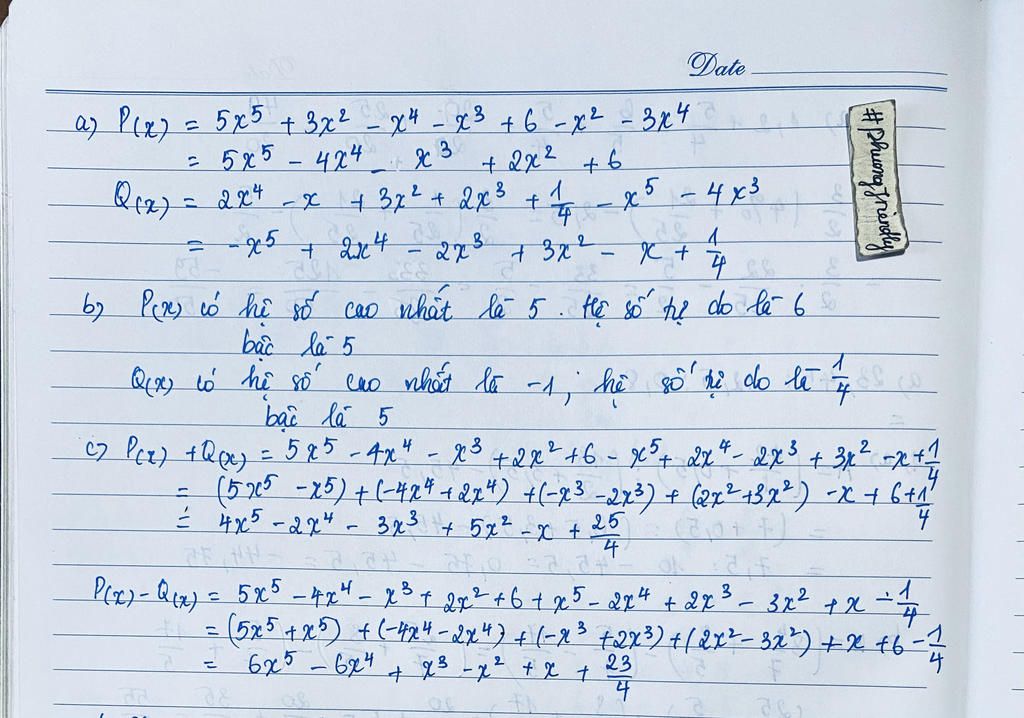 Date
a) P(x) = 5x⁵ + 3x² - x⁴ - x³ + 6 - x² - 3x⁴
= 5x⁵ - 4x⁴ - x³ + 2x² + 6
Q(x) = 2x⁴ - x + 3x² + 2x³ + 1/4 - x⁵ - 4x³
= -x⁵ + 2x⁴ - 2x³ + 3x² - x + 1/4
b) P(x) có hệ số cao nhất là 5. Hệ số tự do là 6
bậc là 5
Q(x) có hệ số cao nhất là -1; hệ số tự do là 1/4
bậc là 5
c) P(x) + Q(x) = 5x⁵ - 4x⁴ - x³ + 2x² + 6 - x⁵ + 2x⁴ - 2x³ + 3x² - x + 1/4
= (5x⁵ - x⁵) + (-4x⁴ + 2x⁴) + (-x³ - 2x³) + (2x² + 3x²) - x + 6 + 1/4
= 4x⁵ - 2x⁴ - 3x³ + 5x² - x + 25/4
P(x) - Q(x) = 5x⁵ - 4x⁴ - x³ + 2x² + 6 + x⁵ - 2x⁴ + 2x³ - 3x² + x - 1/4
= (5x⁵ + x⁵) + (-4x⁴ - 2x⁴) + (-x³ + 2x³) + (2x² - 3x²) + x + 6 - 1/4
= 6x⁵ - 6x⁴ + x³ - x² + x + 23/4
#phuongfriendly